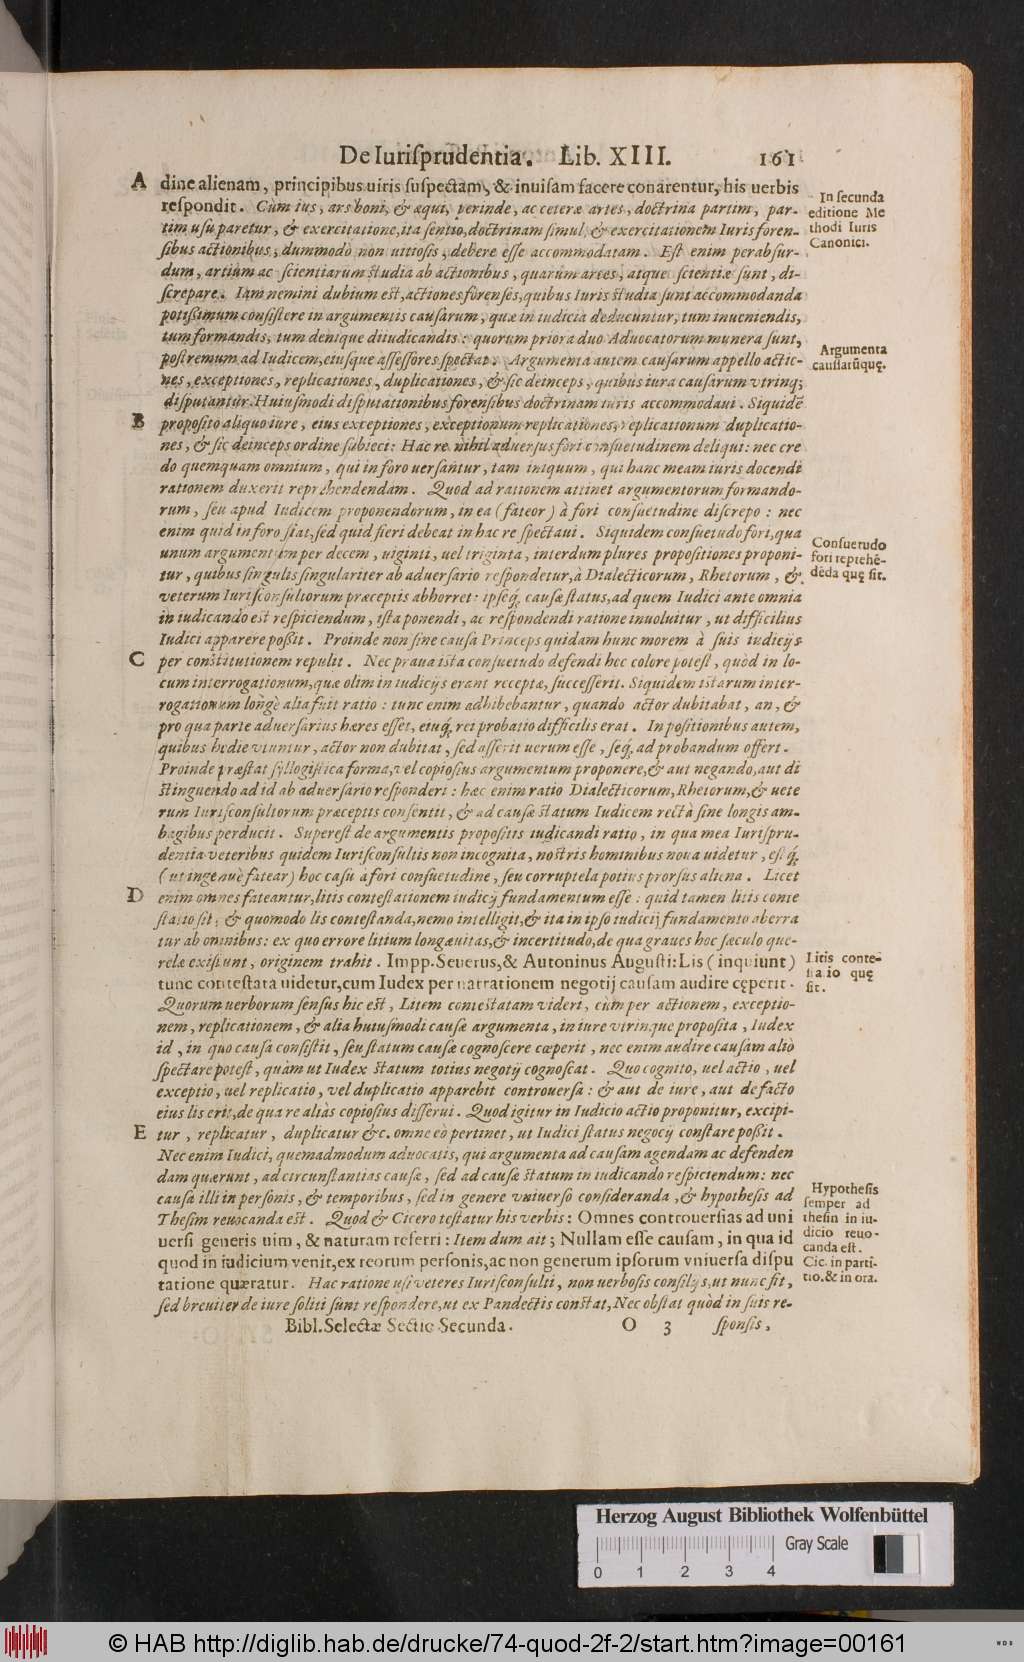 De Iurisprudentia. Lib. XIII. 161
A dine alienam, principibus uiris suspectam, & inuisam facere conarentur, his uerbis
respondit. Cùm ius, ars boni, & æqui, perinde, ac ceteræ artes, doctrina partim, par-
tim usu paretur, & exercitatione, ita sentio, doctrinam simul, & exercitationem Iuris foren-
sibus actionibus, dummodò non uitiosis, debere esse accommodatam. Est enim perabsur-
dum, artium ac scientiarum studia ab actionibus, quarum artes, atque scientiæ sunt, di-
screpare. Iam nemini dubium est, actiones forenses, quibus Iuris studia sunt accommodanda
potißimum consistere in argumentis causarum, quæ in iudicia deducuntur, tum inueniendis,
tum formandis, tum denique diiudicandis: quorum priora duo Aduocatorum munera sunt,
postremum ad Iudicem, eiusque assessores spectat. Argumenta autem causarum appello actio-
nes, exceptiones, replicationes, duplicationes, & sic deinceps, quibus iura causarum vtrinq;
disputantur. Huiusmodi disputationibus forensibus doctrinam iuris accommodaui. Siquidē
B proposito aliquo iure, eius exceptiones, exceptionum replicationes, replicationum duplicatio-
nes, & sic deinceps ordine subieci: Hac re nihil aduersus fori consuetudinem deliqui: nec cre
do quemquam omnium, qui in foro uersantur, tam iniquum, qui hanc meam iuris docendi
rationem duxerit reprehendendam. Quod ad rationem attinet argumentorum formando-
rum, seu apud Iudicem proponendorum, in ea (fateor) à fori consuetudine discrepo: nec
enim quid in foro fiat, sed quid fieri debeat in hac re spectaui. Siquidem consuetudo fori, qua
unum argumentum per decem, uiginti, uel triginta, interdum plures propositiones proponi-
tur, quibus singulis singulariter ab aduersario respondetur, à Dialecticorum, Rhetorum, &
veterum Iurisconsultorum præceptis abhorret: ipseq́; causæ status, ad quem Iudici ante omnia
in iudicando est respiciendum, ista ponendi, ac respondendi ratione inuoluitur, ut difficilius
Iudici apparere poßit. Proinde non sine causa Princeps quidam hunc morem à suis iudicijs
C per constitutionem repulit. Nec praua ista consuetudo defendi hoc colore potest, quòd in lo-
cum interrogationum, quæ olim in iudicijs erant receptæ, successerit. Siquidem istarum inter-
rogationum longè alia fuit ratio: tunc enim adhibebantur, quando actor dubitabat, an, &
pro qua parte aduersarius hæres esset, eiuq́; rei probatio difficilis erat. In positionibus autem,
quibus hodie vtuntur, actor non dubitat, sed asserit uerum esse, seq́; ad probandum offert.
Proinde præstat syllogistica forma, vel copiosius argumentum proponere, & aut negando, aut di
stinguendo ad id ab aduersario responderi: hæc enim ratio Dialecticorum, Rhetorum, & uete
rum Iurisconsultorum præceptis consentit, & ad causæ statum Iudicem rectà sine longis am-
bagibus perducit. Superest de argumentis propositis iudicandi ratio, in qua mea Iurispru-
dentia veteribus quidem Iurisconsultis non incognita, nostris hominibus noua uidetur, estq́;
(ut ingenuè fatear) hoc casu à fori consuetudine, seu corruptela potius prorsus aliena. Licet
D enim omnes fateantur, litis contestationem iudicij fundamentum esse: quid tamen litis conte
statio sit, & quomodo lis contestanda, nemo intelligit, & ita in ipso iudicij fundamento aberra
tur ab omnibus: ex quo errore litium longæuitas, & incertitudo, de qua graues hoc sæculo que-
relæ existunt, originem trahit. Impp. Seuerus, & Antoninus Augusti: Lis (inquiunt)
tunc contestata uidetur, cum Iudex per narrationem negotij causam audire cęperit.
Quorum uerborum sensus hic est, Litem contestatam videri, cùm per actionem, exceptio-
nem, replicationem, & alia huiusmodi causæ argumenta, in iure vtrinque proposita, Iudex
id, in quo causa consistit, seu statum causæ cognoscere cœperit, nec enim audire causam aliò
spectare potest, quàm ut Iudex statum totius negotij cognoscat. Quo cognito, uel actio, uel
exceptio, uel replicatio, vel duplicatio apparebit controuersa: & aut de iure, aut de facto
eius lis erit, de qua re aliàs copiosius disserui. Quod igitur in Iudicio actio proponitur, excipi-
E tur, replicatur, duplicatur &c. omne eò pertinet, ut Iudici status negocij constare poßit.
Nec enim Iudici, quemadmodum aduocatis, qui argumenta ad causam agendam ac defenden
dam quærunt, ad circunstantias causæ, sed ad causæ statum in iudicando respiciendum: nec
causa illi in personis, & temporibus, sed in genere vniuerso consideranda, & hypothesis ad
Thesim reuocanda est. Quod & Cicero testatur his verbis: Omnes controuersias ad uni
uersi generis uim, & naturam referri: Item dum ait; Nullam esse causam, in qua id
quod in iudicium venit, ex reorum personis, ac non generum ipsorum vniuersa dispu
tatione quæratur. Hac ratione usi veteres Iurisconsulti, non uerbosis consilijs, ut nunc fit,
sed breuiter de iure soliti sunt respondere, ut ex Pandectis constat, Nec obstat quòd in suis re-
Bibl. Selectæ Sectio Secunda. O 3 sponsis,
In secunda
editione Me
thodi Iuris
Canonici.
Argumenta
causarūquę.
Consuetudo
fori reprehē-
dēda quę sit.
Litis conte-
statio quę
sit.
Hypothesis
semper ad
thesin in iu-
dicio reuo-
canda est.
Cic. in parti-
tio. & in ora.
Herzog August Bibliothek Wolfenbüttel
Gray Scale
0 1 2 3 4
© HAB http://diglib.hab.de/drucke/74-quod-2f-2/start.htm?image=00161